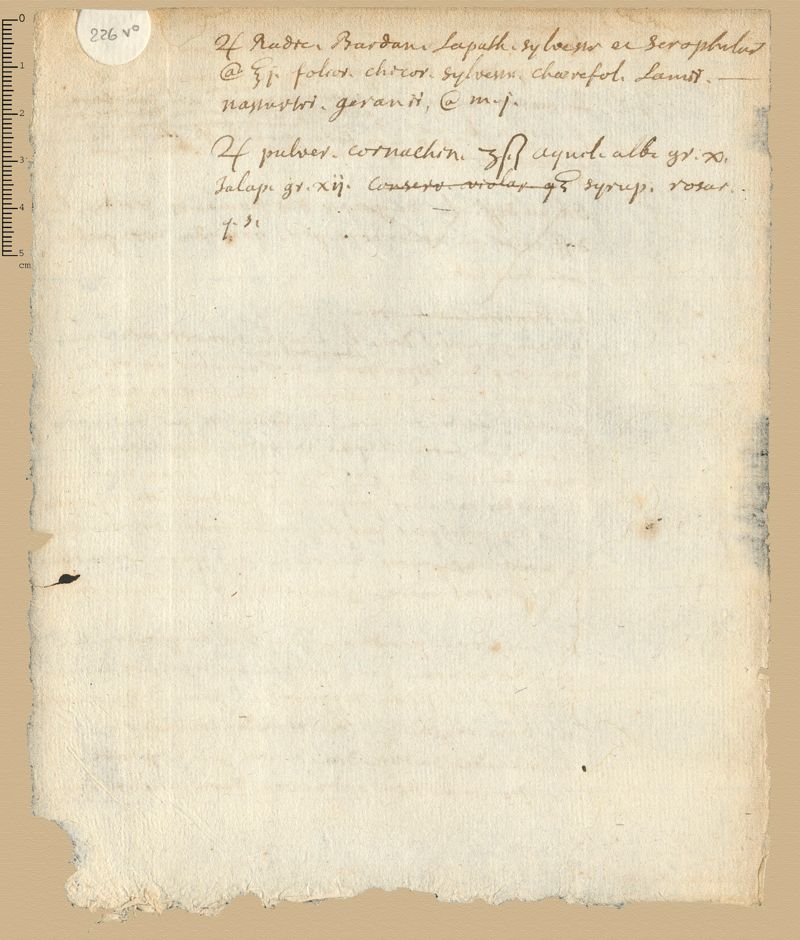 226 vo
♃ Radic. Bardan. Lapath. sylvestr et scrophular
@ ℥j. folior. chicor. sylvestr. chærefol. Lamii.
nasturtii. geranii, @ m. j.
♃ pulver. cornachin. ʒß aquil. alb. gr. x.
Jalap. gr. xij. conserv. violar q syrup. rosar.
q. s.
0
1
2
3
4
5
cm